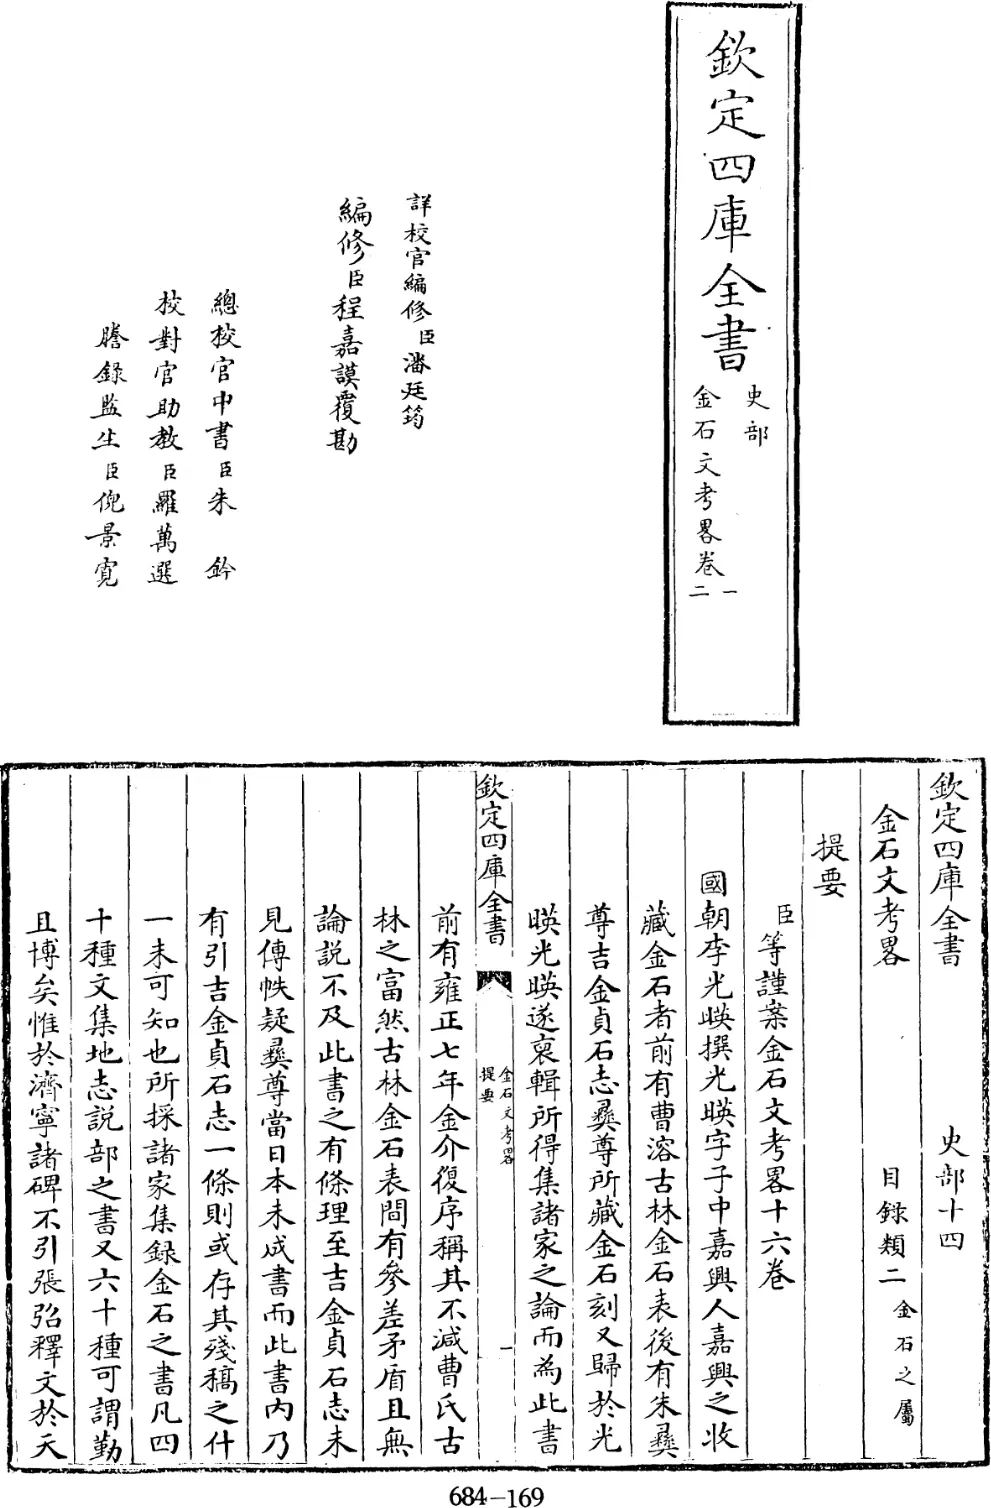 欽定四庫全書
史部
金石文考畧卷一
二
詳校官編修臣潘廷筠
編修臣程嘉謨覆勘
總校官中書臣朱鈐
校對官助教臣羅萬選
謄錄監生臣倪景寬
欽定四庫全書　史部十四
金石文考畧　目錄類二金石之屬
提要
臣等謹案金石文考畧十六卷
國朝李光暎撰光暎字子中嘉興人嘉興之收
藏金石者前有曹溶古林金石表後有朱彝
尊吉金貞石志彝尊所藏金石刻又歸於光
暎光暎遂裒輯所得集諸家之論而為此書
欽定四庫全書
金石文考畧
提要
一
前有雍正七年金介復序稱其不減曹氏古
林之富然古林金石表間有參差矛盾且無
論說不及此書之有條理至吉金貞石志未
見傳帙疑彝尊當日本未成書而此書内乃
有引吉金貞石志一條則或存其殘稿之什
一未可知也所採諸家集録金石之書凡四
十種文集地志説部之書又六十種可謂勤
且博矣惟於濟寧諸碑不引張弨釋文於天
684-169